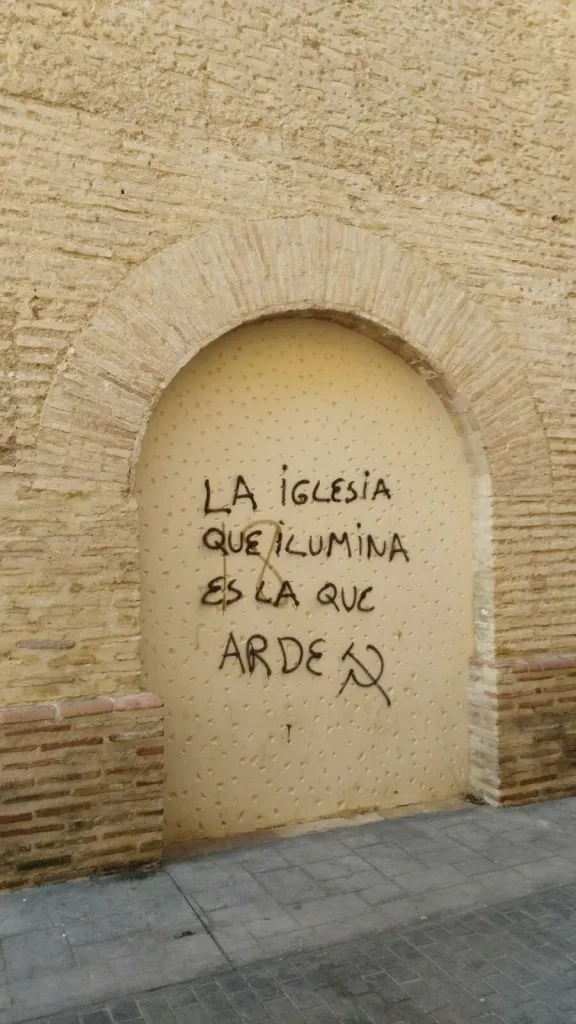 LA IGLESIA
QUE ILUMINA
ES LA QUE
ARDE ☭